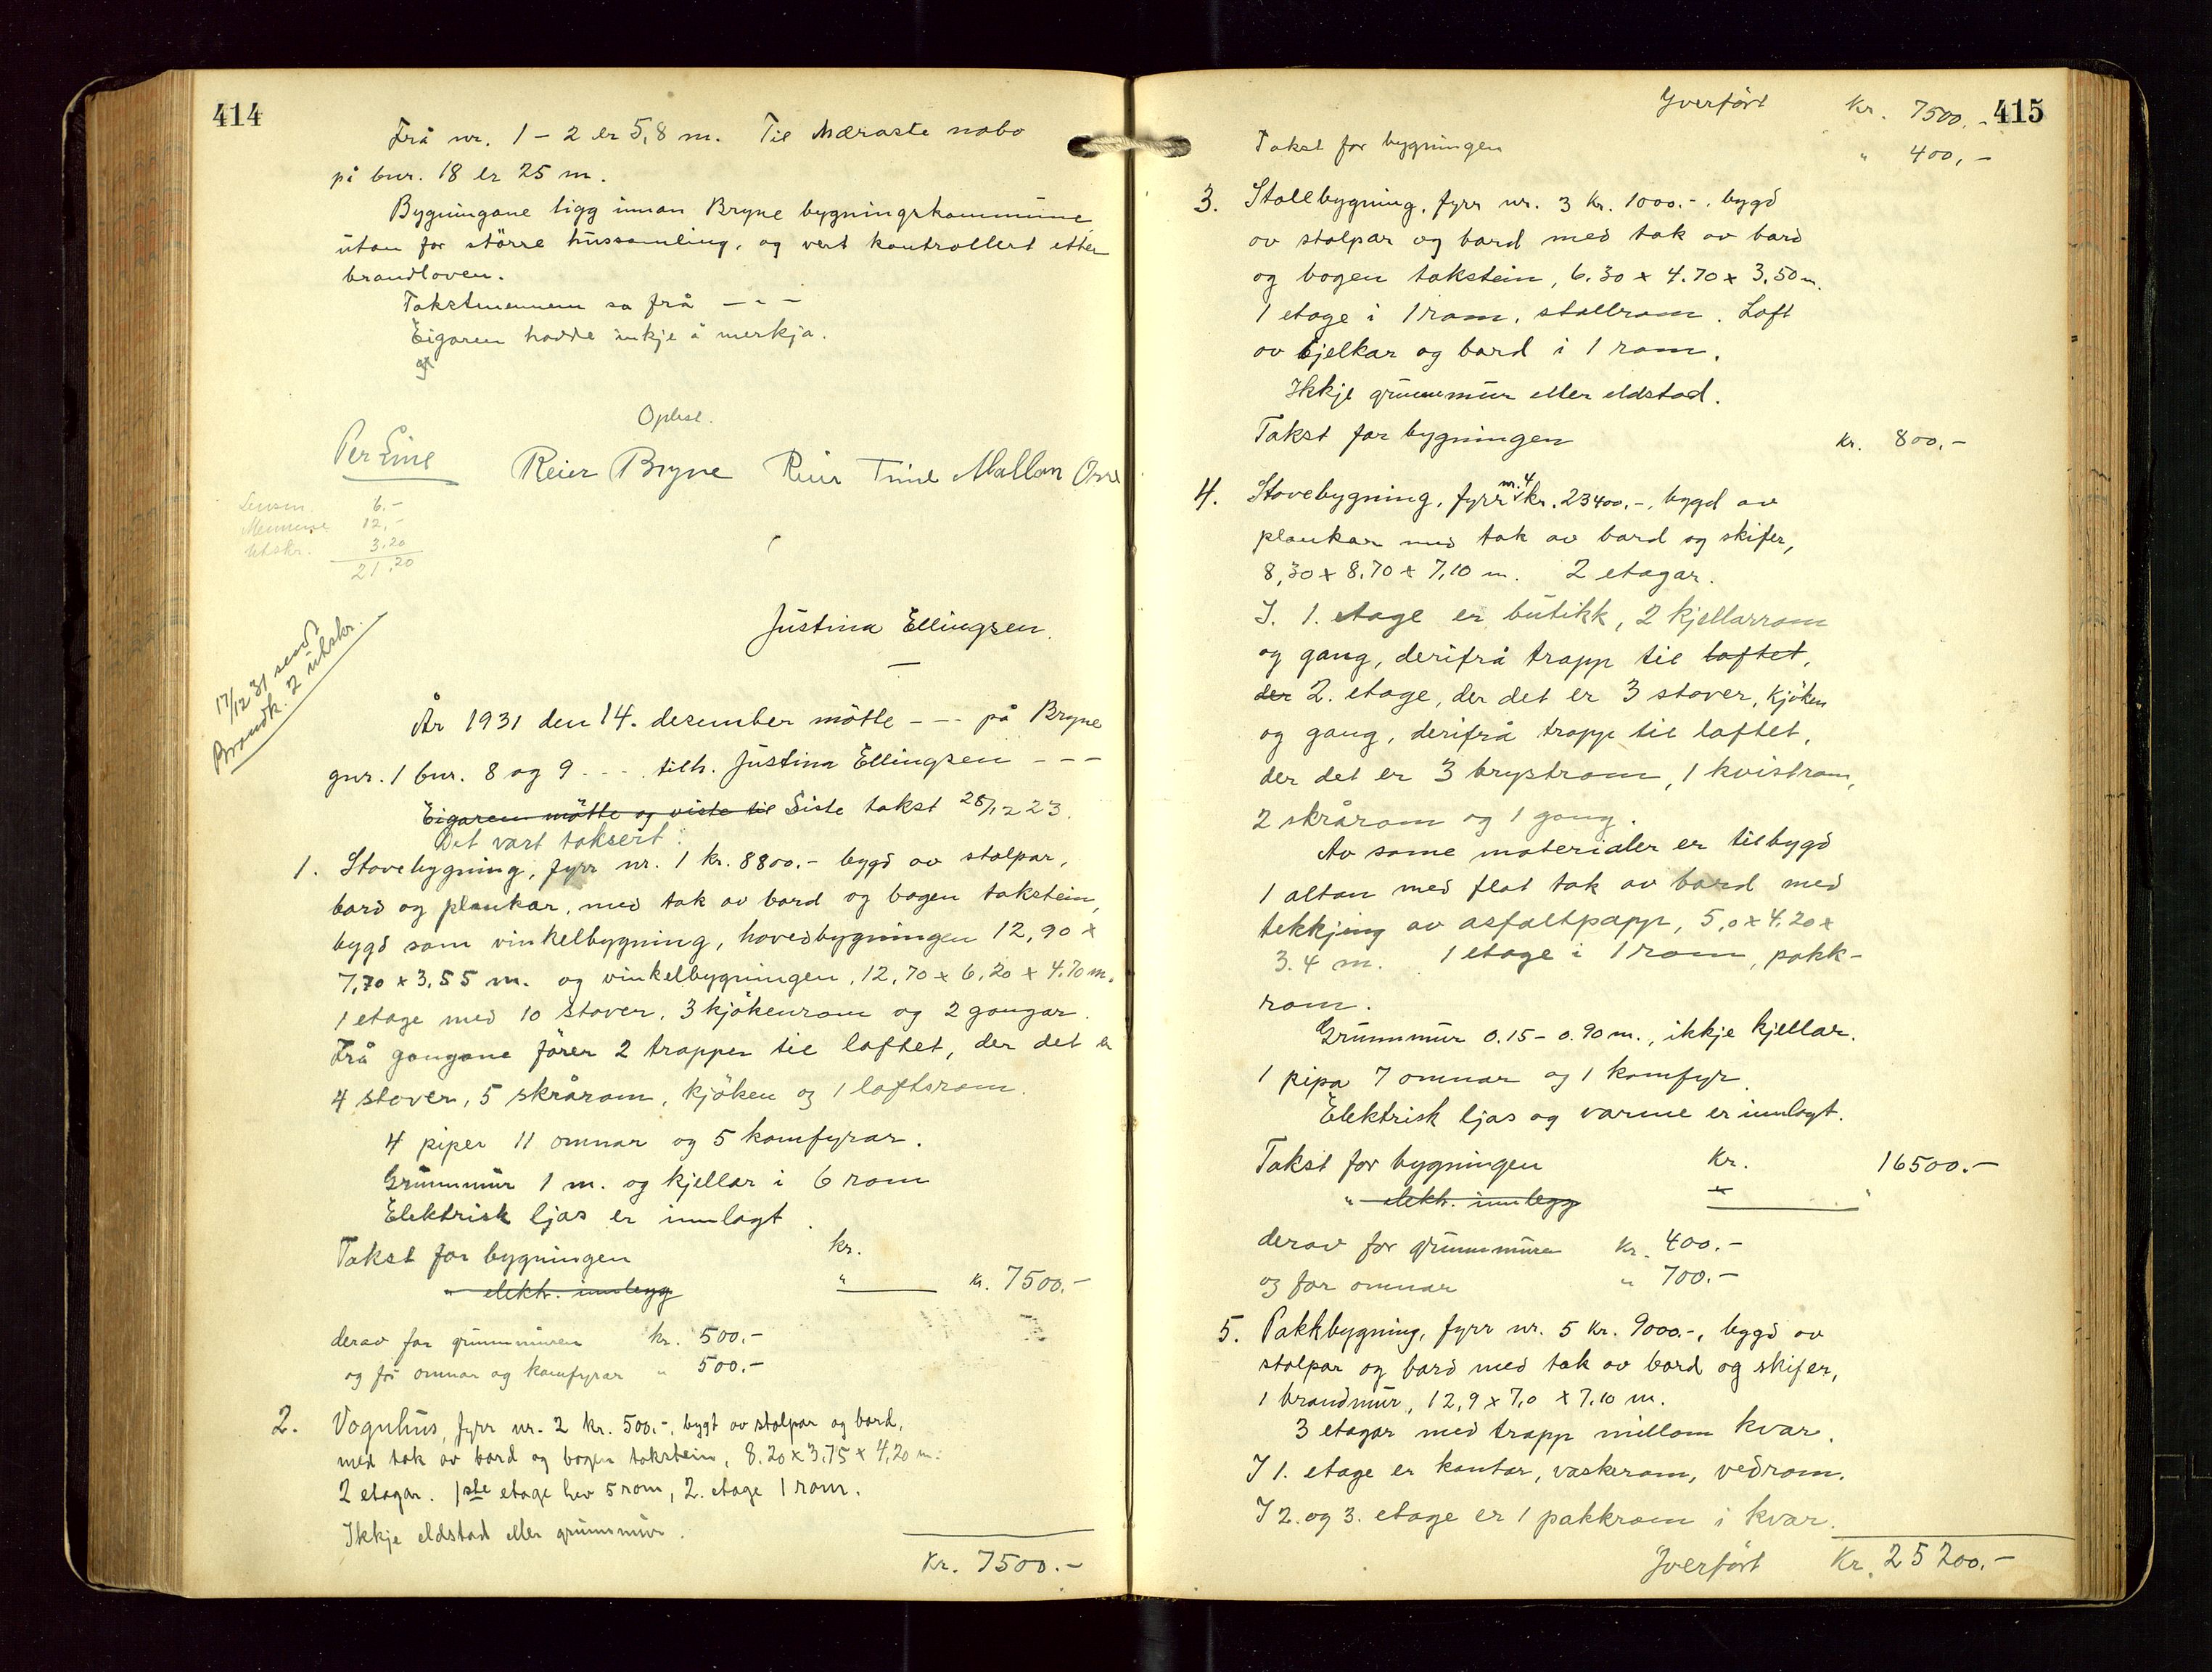 414
Frå nr. 1 - 2 er 5,8 m. Til Næraste nabo
på bnr. 18 er 25 m.
Bygningane ligg innan Bryne bygningskommune
utan for större hussamling, og vert kontrollert etter
brandloven.
Takstmennem sa frå - " -
Eigaren hadde inkje å merkja.
Oplest.
Per Line Reier Bryne Reier Time Mallon Orre
Lensm. 6.-
Mennene 12,-
Utskr. 3,20
21,20
Justina Ellingsen.
17/12 31 sendt
Brandk. 2 utskr.
År 1931 den 14. desember mötte - - - på Bryne
gnr. 1 bnr. 8 og 9 - - - tilh. Justina Ellingsen - - -
Eigaren mötte og viste til Siste takst 28/12 23.
Det vart taksert:
1. Stovebygning, fyrr nr. 1 kr. 8800.- bygd av stolpar,
bord og plankar, med tak av bord og bogen takstein,
bygd som vinkelbygning, hovedbygningen 12,90 x
7,70 x 3,55 m. og vinkelbygningen, 12,70 x 6,20 x 4.70 m.
1 etage med 10 stover, 3 kjökenrom og 2 gongar.
Frå gongane förer 2 trapper til loftet, der det er
4 stover, 5 skrårom, kjöken og 1 loftsrom.
4 piper 11 omnar og 5 komfyrar.
Grunnmur 1 m. og kjellar i 6 rom
Elektrisk ljos er innlagt.
Takst for bygningen kr.
" elektr. innlegg " kr. 7500.-
derav for grunnmuren kr. 500.-
og for omnar og komfyrar " 500.-
2. Vognhus, fyrr nr. 2 kr. 500.-, bygt av stolpar og bord,
med tak av bord og bogen takstein, 8.20 x 3,75 x 4,20 m.
2 etagar. 1ste etage hev 5 rom, 2. etage 1 rom.
Ikkje eldstad eller grunnmur.
Kr. 7500.-
415
Yverfört Kr. 7500.-
Takst for bygningen " 400,-
3. Stallbygning, fyrr nr. 3 kr. 1000.-, bygd
av stolpar og bord med tak av bord
og bogen takstein, 6.30 x 4.70 x 3,50 m.
1 etage i 1 rom, stallrom. Loft
av bjelkar og bord i 1 rom.
Ikkje grunnmur eller eldstad.
Takst for bygningen kr. 800.-
4. Stovebygning, fyrr nr. 4 kr. 23400.-, bygd av
plankar med tak av bord og skifer,
8,30 x 8,70 x 7,10 m. 2 etagar.
I. 1. etage er butikk, 2 kjellarrom
og gang, derifrå trapp til loftet,
der 2. etage, der det er 3 stover, kjöken
og gang, derifrå trapp til loftet,
der det er 3 brystrom, 1 kvistrom,
2 skrårom og 1 gong.
Av some materialer er tilbygd
1 altan med flat tak av bord med
tekkjing av asfaltpapp, 5,0 x 4.20 x
3.4 m. 1 etage i 1 rom, pakk-
rom.
Grunnmur 0.15 - 0.90 m., ikkje kjellar.
1 pipa 7 omnar og 1 komfyr.
Elektrisk ljos og varme er innlagt.
Takst for bygningen Kr. 16500.-
" elektr. innlegg "
derav for grunnmuren Kr. 400.-
og for omnar " 700.-
5. Pakkbygning, fyrr nr. 5 kr. 9000.-, bygd av
stolpar og bord med tak av bord og skifer,
1 brandmur, 12,9 x 7,0 x 7,10 m.
3 etagar med trapp millom kvar.
I 1. etage er kontor, vaskerom, vedrom.
I 2. og 3. etage er 1 pakkrom i kvar.
Yverfört Kr. 25200.-